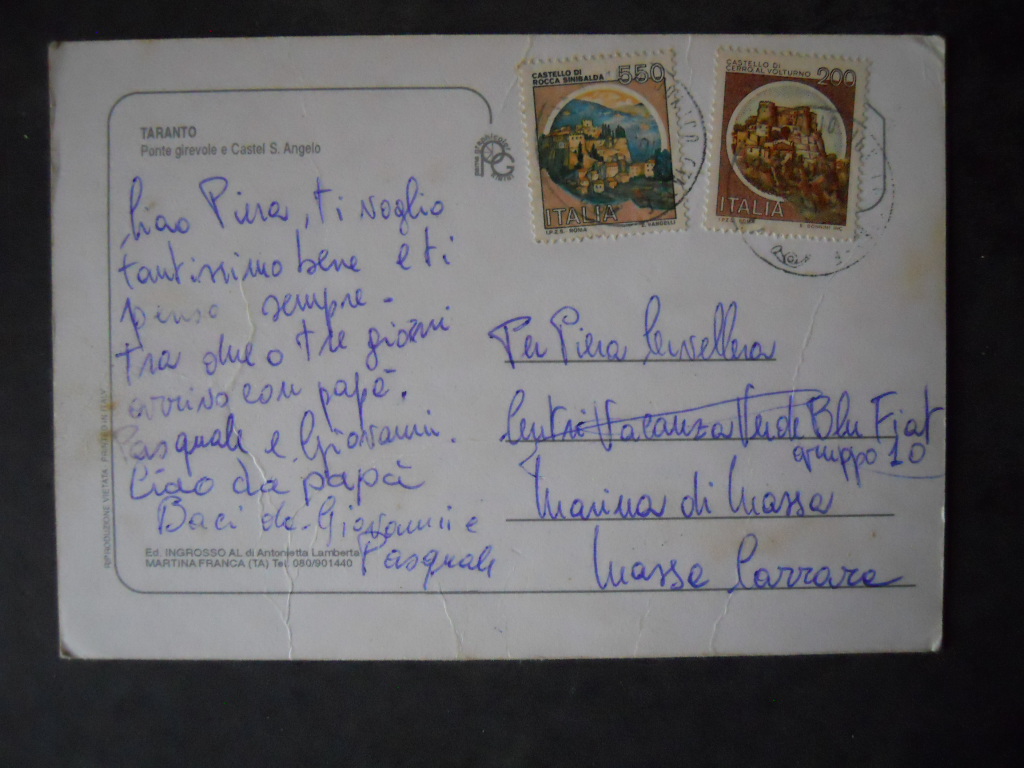 TARANTO
Ponte girevole e Castel S. Angelo
Ciao Piera, ti voglio
tantissimo bene e ti
penso sempre -
tra due o tre giorni
arrivo con papà.
Pasquale e Giovanni.
Ciao da papà
Baci da Giovanni e
Pasquale
Ed. INGROSSO AL di Antonietta Lamberta
MARTINA FRANCA (TA) Tel. 080/901440
RIPRODUZIONE VIETATA - PRINTED IN ITALY
PG
CASTELLO DI
ROCCA SINIBALDA
550
ITALIA
I.P.Z.S. ROMA
E. VANGELLI
CASTELLO DI
CERRO AL VOLTURNO
200
ITALIA
I.P.Z.S. ROMA
Per Piera
Centri Vacanza Verde Blu Fiat
gruppo 10
Marina di Massa
Massa Carrara